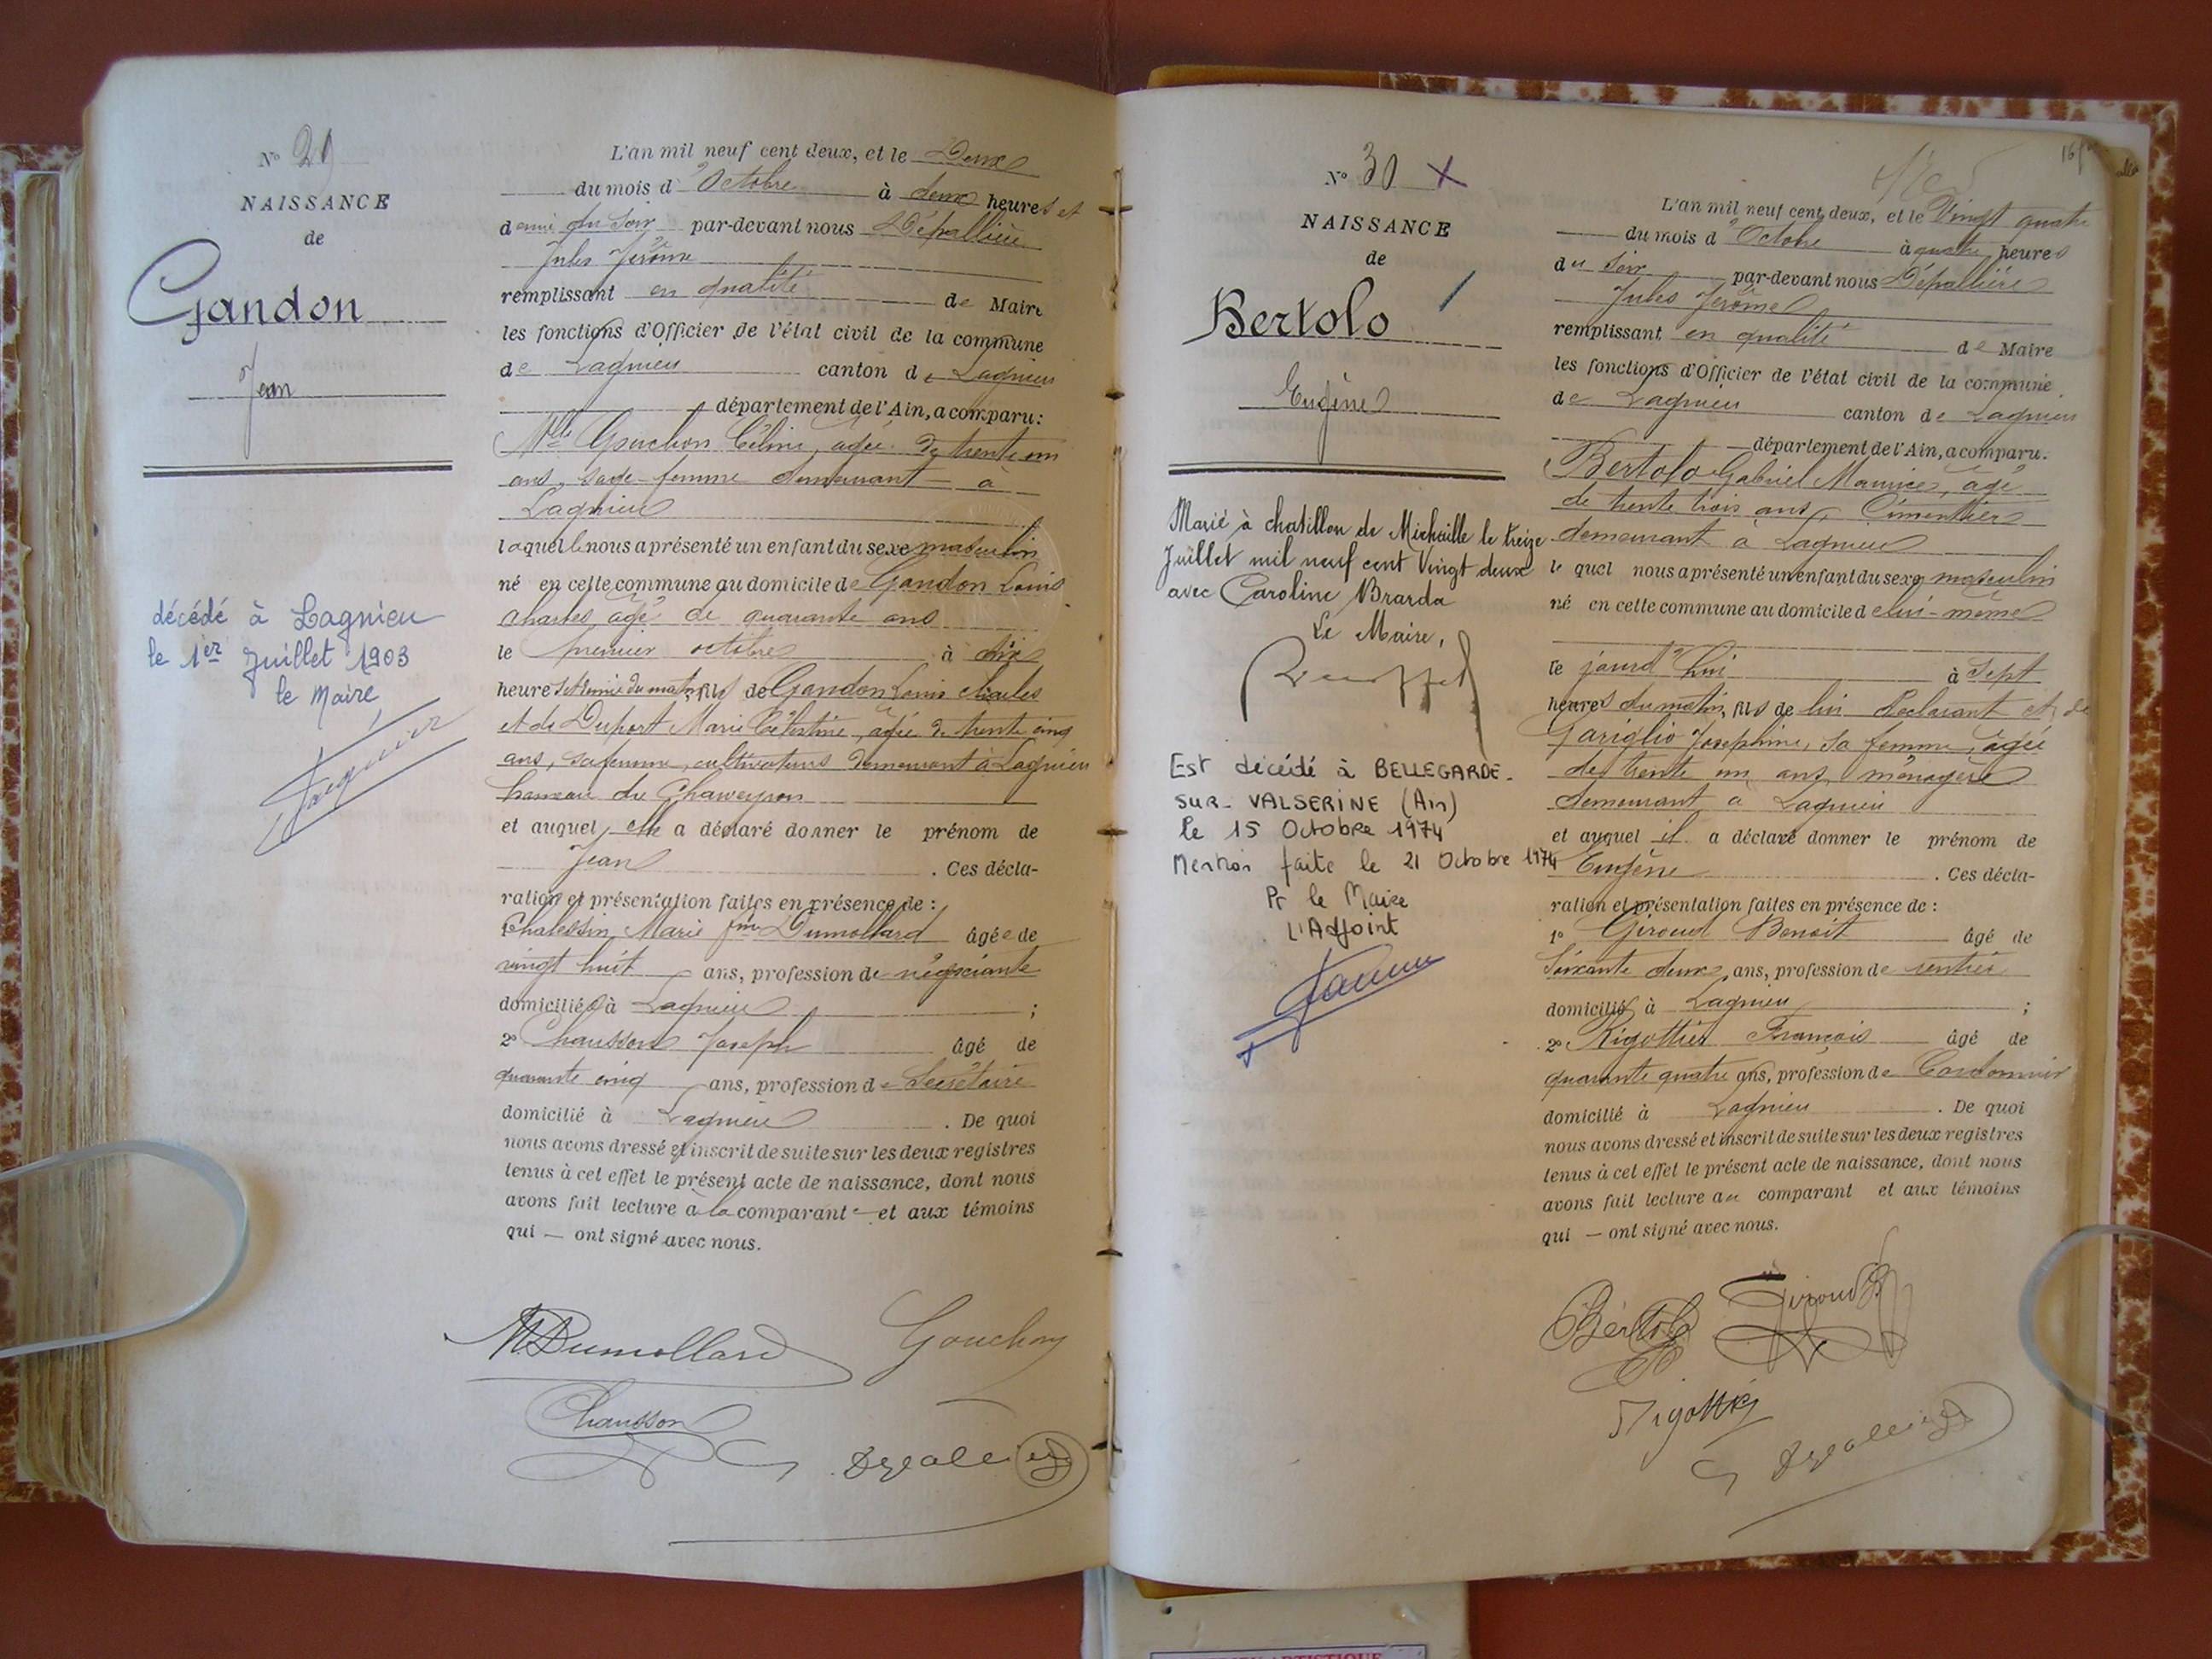 N° 29
NAISSANCE
de
Gandon
Jean
décédé à Lagnieu
le 1er Juillet 1903
le Maire,
L'an mil neuf cent deux, et le Deux
du mois d'Octobre à deux heures et
demi du soir par-devant nous Dépallière
Jules Jérôme
remplissant en qualité de Maire
les fonctions d'Officier de l'état civil de la commune
de Lagnieu canton de Lagnieu
département de l'Ain, a comparu:
Mlle Gouchon Céline, agée de trente un
ans, sage-femme demeurant à
Lagnieu
laquelle nous a présenté un enfant du sexe masculin
né en cette commune au domicile de Gandon Louis
Charles, agé de quarante ans
le premier octobre à dix
heures et demie du matin, fils de Gandon Louis Charles
et de Duport Marie Célestine, agée de trente cinq
ans, sa femme, cultivateurs demeurant à Lagnieu
hameau du Chaweyron
et auquel elle a déclaré donner le prénom de
Jean . Ces décla-
ration et présentation faites en présence de :
1° Chalessin, Marie fme Dumollard âgée de
vingt huit ans, profession de négociante
domiciliée à Lagnieu ;
2° Chausson Joseph âgé de
quarante cinq ans, profession de Secrétaire
domicilié à Lagnieu . De quoi
nous avons dressé et inscrit de suite sur les deux registres
tenus à cet effet le présent acte de naissance, dont nous
avons fait lecture à la comparante et aux témoins
qui — ont signé avec nous.
M Dumollard Gouchon
Chausson Depallière
N° 30 X
NAISSANCE
de
Bertolo
Eugène
Marié à chatillon de Michaille le treize
Juillet mil neuf cent Vingt deux
avec Caroline Brarda
Le Maire,
Est décédé à BELLEGARDE-
SUR-VALSERINE (Ain)
le 15 Octobre 1974
Mention faite le 21 Octobre 1974
Pr le Maire
L'Adjoint
L'an mil neuf cent deux, et le Vingt quatre
du mois d'Octobre à quatre heures
du soir par-devant nous Dépallière
Jules Jérôme
remplissant en qualité de Maire
les fonctions d'Officier de l'état civil de la commune
de Lagnieu canton de Lagnieu
département de l'Ain, a comparu.
Bertolo Gabriel Maurice, agé
de trente trois ans, Cimentier
demeurant à Lagnieu
lequel nous a présenté un enfant du sexe masculin
né en cette commune au domicile de lui-même
le jourd'hui à Sept
heures du matin, fils de lui déclarant et de
Gariglio Joséphine, sa femme, agée
de trente un ans, ménagère
demeurant à Lagnieu
et auquel il a déclaré donner le prénom de
Eugène . Ces décla-
ration et présentation faites en présence de :
1° Giroud Benoit âgé de
Soixante deux ans, profession de rentier
domicilié à Lagnieu ;
2° Rigottier François âgé de
quarante quatre ans, profession de Cordonnier
domicilié à Lagnieu . De quoi
nous avons dressé et inscrit de suite sur les deux registres
tenus à cet effet le présent acte de naissance, dont nous
avons fait lecture au comparant et aux témoins
qui — ont signé avec nous.
Bertolo Giroud
Rigottier
Depallière